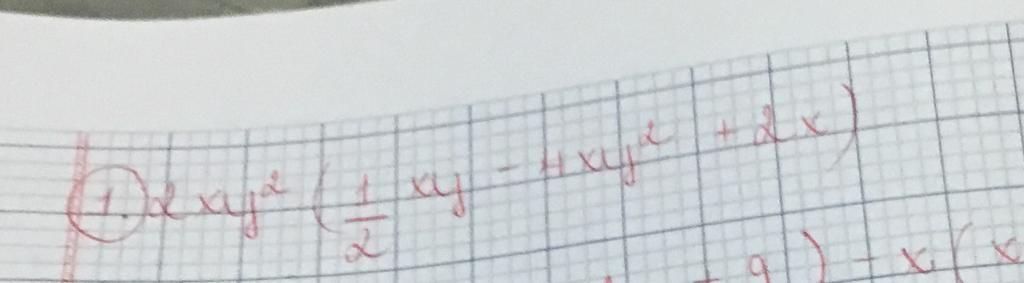 1. 2xy² (1/2 xy - 4xy² + 2x)
9) - x(x